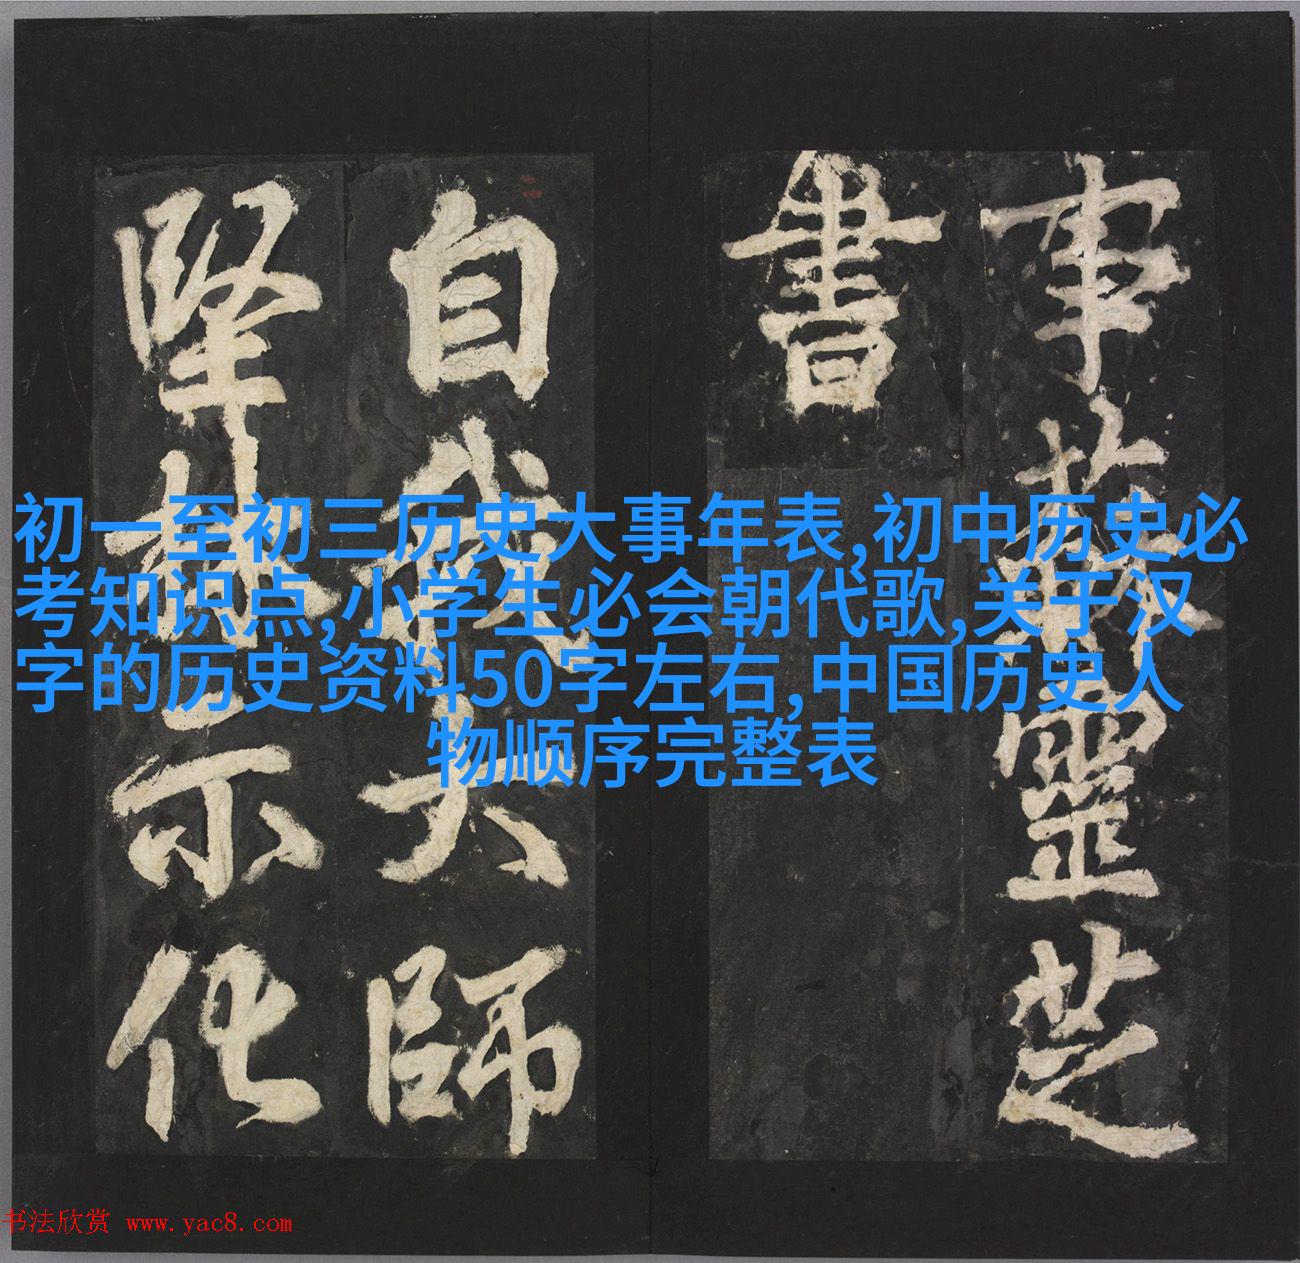 事蘇靈芝
書
自我大師
堅林示化
初一至初三历史大事年表,初中历史必
考知识点,小学生必会朝代歌,关于汉
字的历史资料50字左右,中国历史人
物顺序完整表
书法欣赏 www.yac8.com